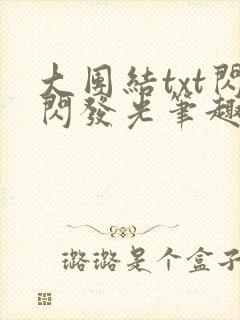 大团結txt閃
閃發光筆趣
璐璐是个盒子